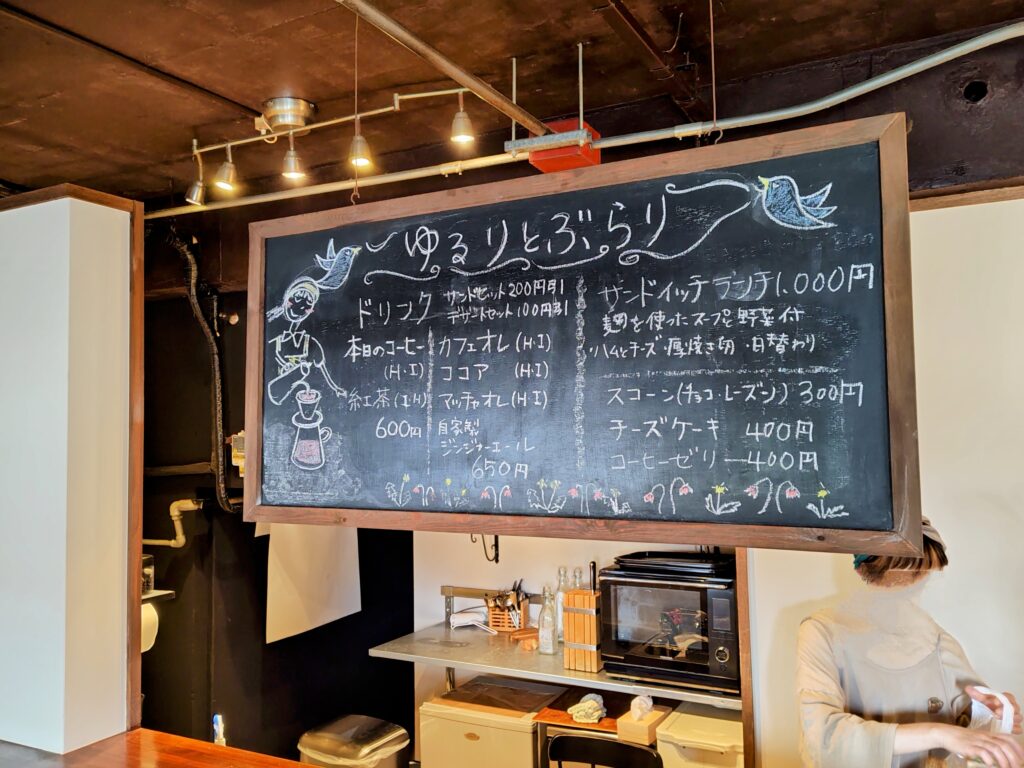 ゆるりとぶらり
ドリンク
サンドセット200円引
デザートセット100円引
本日のコーヒー
(H・I)
紅茶(I・H)
600円
カフェオレ(H・I)
ココア (H・I)
マッチャオレ(H・I)
自家製
ジンジャーエール
650円
サンドイッチランチ1,000円
麹を使ったスープと野菜付
・ハムとチーズ・厚焼き卵・日替わり
スコーン(チョコ・レーズン) 300円
チーズケーキ 400円
コーヒーゼリー 400円